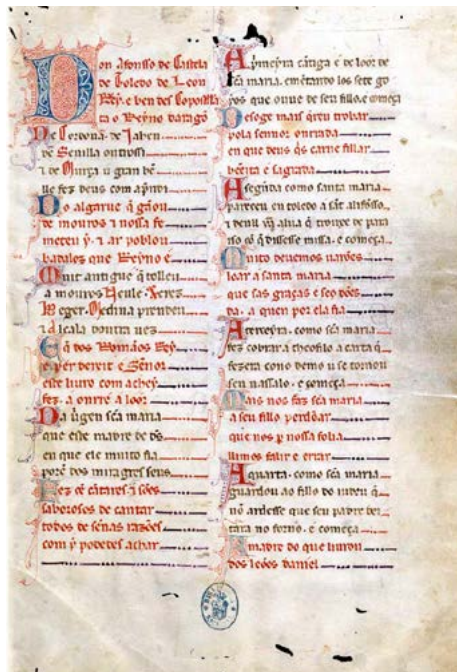 Don Afonsso de Castela
de Toledo de Leon
Rey. e ben des Copostela
ta o Reyno daragō
De Cordoua. de Jahen
de Seuilla outrossi
⁊ de Murça u gran bē
lle fez deus com aprēdi
Do algarue q̄ gāou
de mouros ⁊ nossa fe
meteu y. ⁊ ar poblou
badallouz que Reyno é
Muit antigue q̄ tolleu
a mouros Neule. Xerez
Beger. Medina prendeu
⁊ Alcala doutra uez
E q̄ dos Romãos Rey
é per dereit e Señor
este liuro com achey
fez. a onrr e a loor
Da uirgen scā maria
que este madre de ds̄
en que ele muito fia
porē dos miragres seus
Fez cātares ⁊ sōes
saborosos de cantar
todos de sennas razōes
com y podedes achar
A primeyra cātiga é de loor de
scā maria. emētando los sete go
yos que ouue de seu fillo. e comeca
Des oge mais q̄reu trobar
pola sennor onrrada
en que deus q̄s carne fillar
bēeita e sagrada
A segūda como santa maria
pareceu en toledo a sāt alifonsso.
⁊ deull ūa alua q̄ trouxe de para
yso cō q̄ dissesse missa. e comeca
Muito deuemos uarōes
loar a santa maria
que sas graças e seus dōes
da. a quen por ela fia
A terceyra. como scā maria
fez cobrar a theofilo a carta q̄
fezera cono demo u se tornou
seu uassalo. e comeca
Mais nos faz scā maria
a seu fillo perdōar
que nos p̄ nossa folia
llimos falir e errar
A quarta. como scā maria
guardou ao fillo do iudeu q̄
nō ardesse que seu padre dei
tara no forno. e comeca
A madre do que liurou
dos leōes daniel